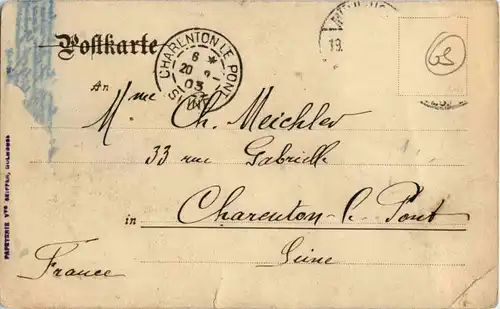 Postkarte
CHARENTON LE PONT
6 *
20
03
63
An Mme Ch. Meichler
33 rue Gabrielle
in Charenton-le-Pont
Seine
France
PAPETERIE